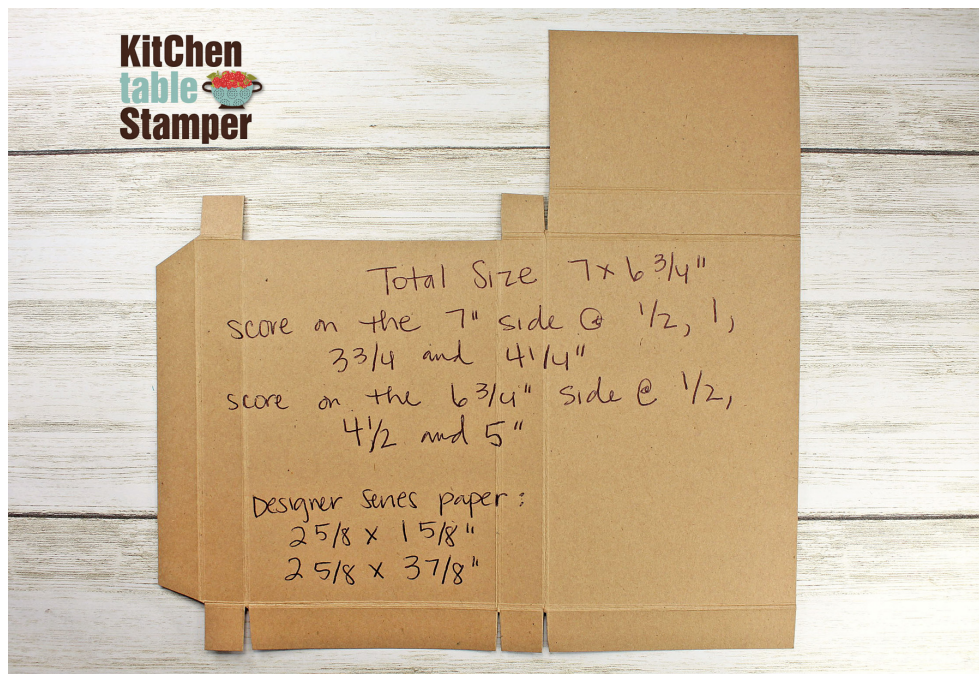 KitChen
table
Stamper
Total Size 7 x 6 3/4"
score on the 7" side @ 1/2, 1,
3 3/4 and 4 1/4"
score on the 6 3/4" side @ 1/2,
4 1/2 and 5"
Designer Series paper:
2 5/8 x 1 5/8"
2 5/8 x 3 7/8"